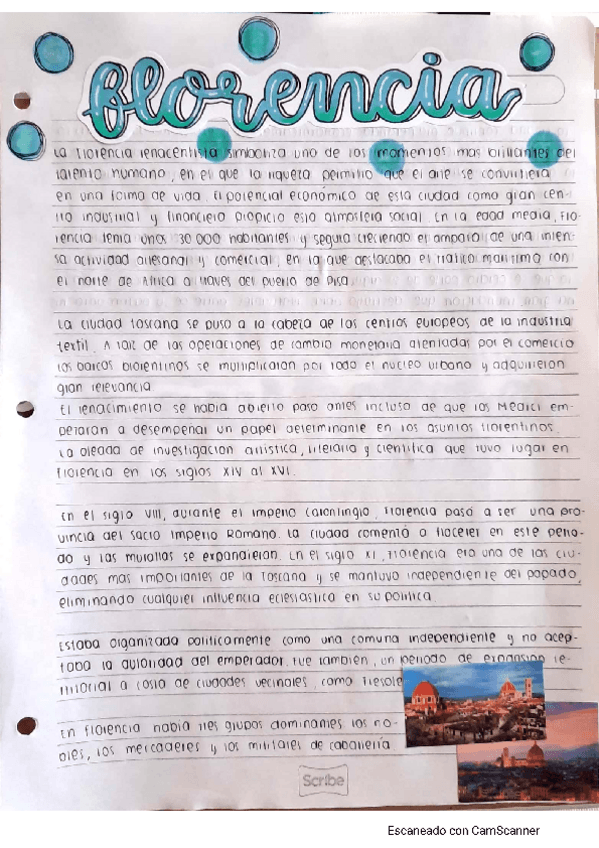 Florencia
La Florencia renacentista simboliza uno de los momentos mas brillantes del
talento humano, en el que la riqueza permitio que el arte se convirtiera
en una forma de vida. El potencial económico de esta ciudad como gran cen-
tro industrial y financiero propicio esta atmosfera social. En la edad media, Flo-
rencia tenia unos 30 000 habitantes y seguía creciendo el amparo de una inten-
sa actividad artesanal y comercial, en la que destacaba el trafico maritimo con
el norte de Africa a traves del puerto de Pisa.
La ciudad toscana se puso a la cabeza de los centros europeos de la industria
textil. A raiz de las operaciones de cambio monetario alentadas por el comercio
los barcos florentinos se multiplicaron por todo el nucleo urbano y adquirieron
gran relevancia
El renacimiento se habia abierto paso antes incluso de que los Medici em-
pezaran a desempeñar un papel determinante en los asuntos florentinos.
La oleada de investigacion artistica, literaria y cientifica que tuvo lugar en
Florencia en los siglos XIV al XVI.
En el siglo VIII, durante el Imperio Carolingio, Florencia pasó a ser una pro-
vincia del Sacro Imperio Romano. La ciudad comentó a florecer en este perio-
do y las murallas se expandieron. En el siglo XI, Florencia era una de las ciu-
dades mas importantes de la Toscana y se mantuvo independiente del papado,
eliminando cualquier influencia eclesiastica en su politica.
Estaba organizada politicamente como una comuna independiente y no acep-
taba la autoridad del emperador. Fue tambien, un periodo de expansion te-
rritorial a costa de ciudades vecinales, como Fiesole
En Florencia habia tres grupos dominantes los no-
bles, los mercaderes y los militares de caballeria
Scribe
Escaneado con CamScanner